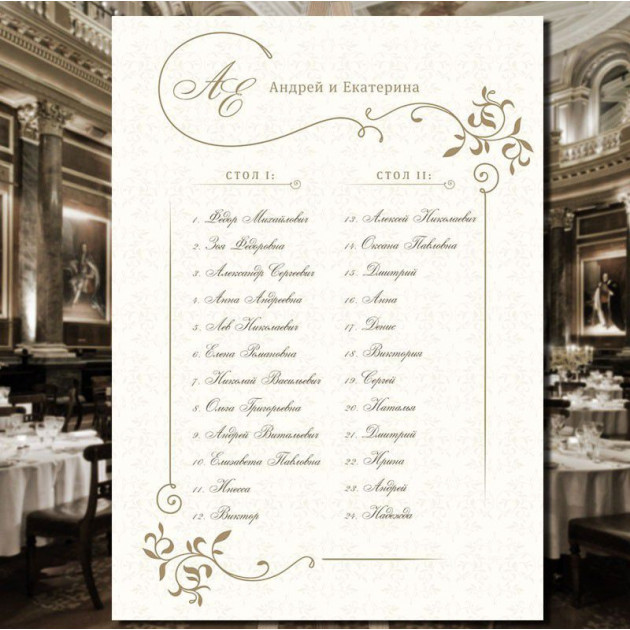 АЕ
Андрей и Екатерина
СТОЛ I:
1. Федор Михайлович
2. Зоя Федоровна
3. Александр Сергеевич
4. Анна Андреевна
5. Лев Николаевич
6. Елена Романовна
7. Николай Васильевич
8. Ольга Григорьевна
9. Андрей Витальевич
10. Елизавета Павловна
11. Инесса
12. Виктор
СТОЛ II:
13. Алексей Николаевич
14. Оксана Павловна
15. Дмитрий
16. Анна
17. Денис
18. Виктория
19. Сергей
20. Наталья
21. Дмитрий
22. Ирина
23. Андрей
24. Надежда